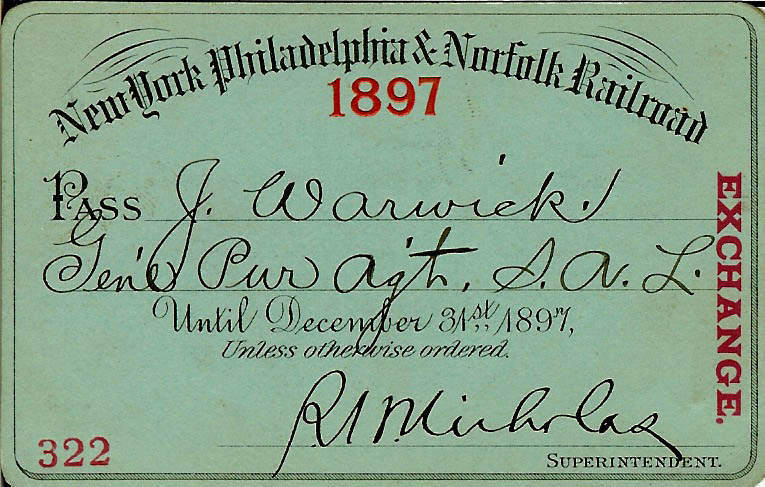 New York Philadelphia & Norfolk Railroad
1897
PASS J. Warwick
Gen'l Pur Agt, S. A. L.
Until December 31st, 1897,
Unless otherwise ordered.
EXCHANGE.
Nicholas
322
SUPERINTENDENT.